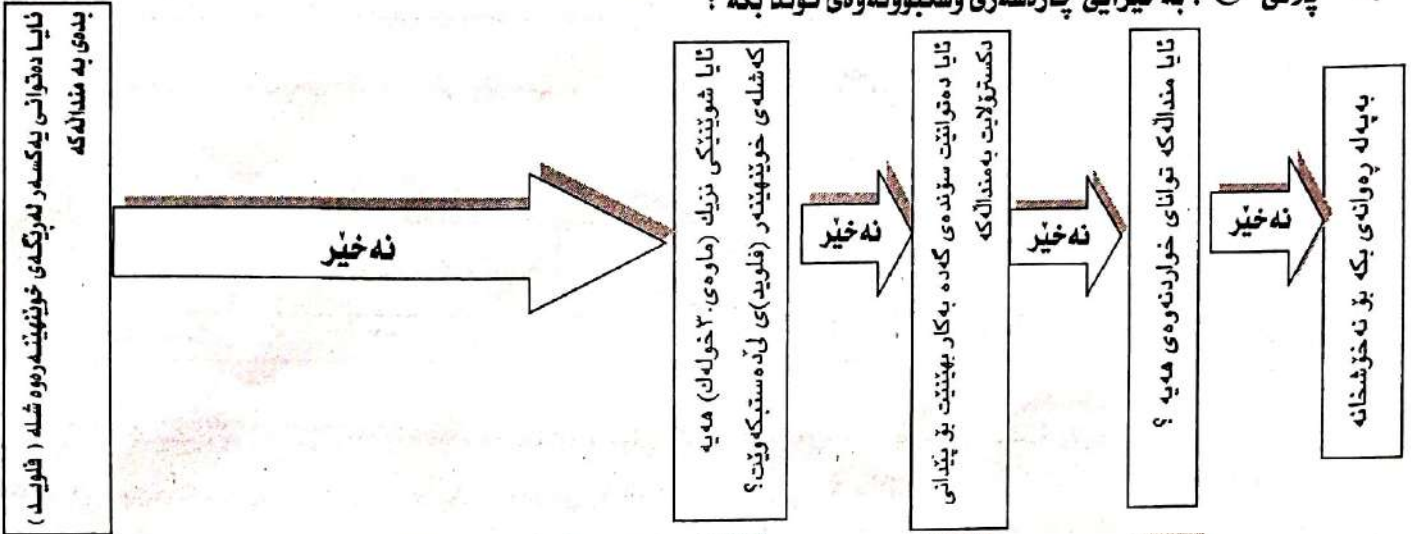 بە خێرایی چارەسەری وشکبوونەوەی توند بکە ؟
ئایا دەتوانی یەکسەر لەرێگەی خوێنهێنەرەوە شلە ( فلویـد )
بدەی بە منداڵەکە
نەخێر
ئایا شوێنێکی نزیك (ماوەی ٣٠خولەك) هەیە
کەشلەی خوێنهێنەر (فلوید)ی لێدەستبکەوێت؟
نەخێر
ئایا دەتوانێت سۆندەی گەدە بەکار بهێنێت بۆ پێدانی
دکسترۆلایت بەمنداڵەکە
نەخێر
ئایا منداڵەکە توانای خواردنەوەی هەیە ؟
نەخێر
بەپەلە ڕەوانەی بکە بۆ نەخۆشخانە